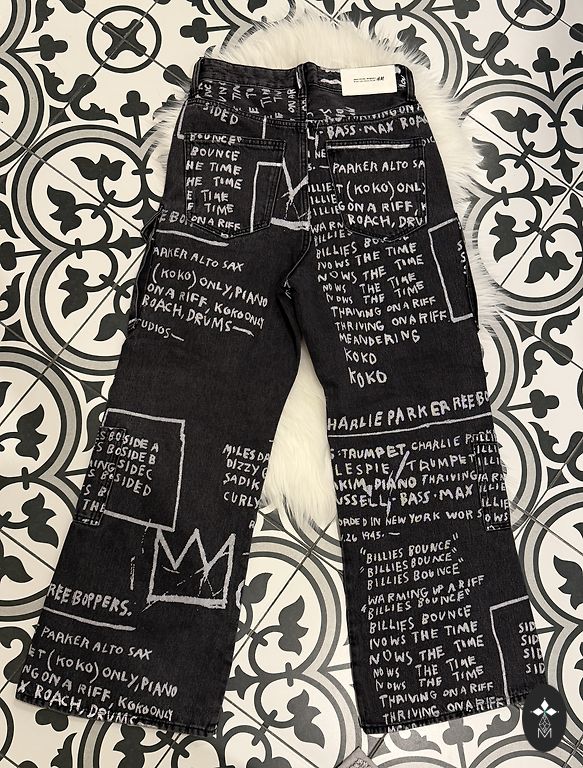 SIDED
BOUNCE
BOUNCE
HE TIME
HE TIME
E TIME
E TIME
ON A RIFF
THRIVING ON
BASS. MAX ROAC
PARKER ALTO SA
(KOKO) ONLY,
ON A RIFF, K
ROACH, DRU
BILLIES BOUNCE
NOWS THE TIME
NOWS THE TIME
NOWS THE TIME
NOWS THE TIME
THRIVING ON A RIFF
THRIVING ON A RIFF
MEANDERING
KOKO
KOKO
PARKER ALTO SAX
(KOKO) ONLY, PIANO
ON A RIFF, KOKO ONLY
ROACH, DRUMS—
UDIOS—
HARLIE PARKER REEBO
SIDE A
SIDE B
SIDE C
SIDED
MILES DA
DIZZY G
SADIK
CURLY
TRUMPET, CHARLIE P
LESPIE, TRUMPET
KIM, PIANO THRIVING
USSELL, BASS. MAX
ORDED IN NEW YORK WOR
.26 1945.—
"BILLIES BOUNCE"
BILLIES BOUNCE"
BILLIES BOUNCE
"WARMING UP A RIFF
BILLIES BOUNCE"
BILLIES BOUNCE
NOWS THE TIME
NOWS THE TIME
NOWS THE TIME
NOWS THE TIME
THRIVING ON A RIFF
THRIVING ON A RIFF
REEBOPPERS.
PARKER ALTO SAX
ET (KOKO) ONLY, PIANO
NG ON A RIFF, KOKO ONLY
X ROACH, DRUMS
SID
SID
SID